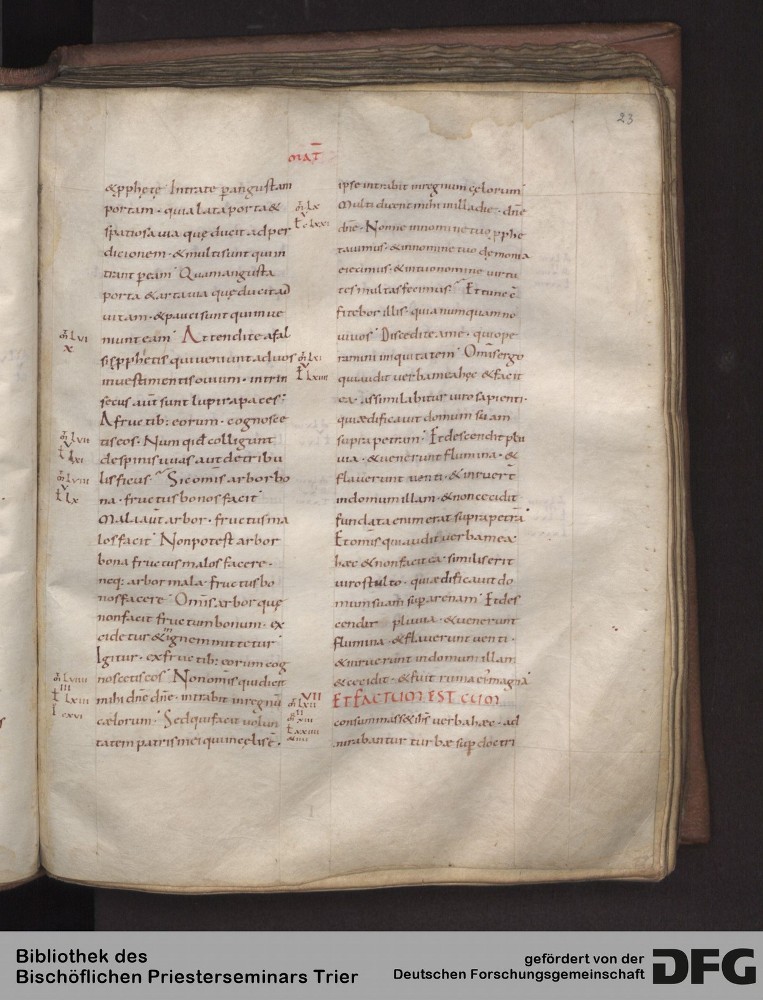 23
MAT̅
&pphętę Intrate p angustam
portam · quia lata porta &
spatiosa uia quę ducit ad per
dicionem · & multi sunt qui in
trant p eam Quam angusta
porta & arta uia quę ducit ad
uitam · & pauci sunt qui inue
niunt eam Attendite a fal
sis pphetis qui ueniunt ad uos
in uestimentis ouium · intrin
secus aut̅ sunt lupi rapaces
A fructib: eorum · cognosce
tis eos · Num qid colligunt
de spinis uuas aut de tribu
lis ficus Sic om̅is arbor bo
na · fructus bonos facit
Mala aut̅ arbor · fructus ma
los facit Non potest arbor
bona fructus malos facere ·
neq: arbor mala · fructus bo
nos facere Om̅is arbor quę
non facit fructum bonum · ex
cidetur & in ignem mittetur
Igitur · ex fructib: eorum cog
noscetis eos Non om̅is qui dicit
mihi dn̅e dn̅e · intrabit in regnu̅
cælorum Sed qui facit uolun
tatem patris mei qui in cęlis e̅ ·
ipse intrabit in regnum cęlorum
Multi dicent mihi in illa die · dn̅e
dn̅e · Nonne in nomine tuo pphe
tauimus · & in nomine tuo dęmonia
eiecimus · & in tuo nomine uirtu
tes multas fecimus Et tunc c̅
fitebor illis · quia numquam no
ui uos Discedite a me · qui ope
ramini iniquitatem Om̅is ergo
qui audit uerba mea hęc & facit
ea · assimilabitur uiro sapienti ·
qui ædificauit domum suam
supra petram · Et descendit plu
uia · & uenerunt flumina · &
flauerunt uenti · & inruer̅t
in domum illam · & non cecidit
fundata enim erat supra petra̅
Et om̅is qui audit uerba mea
hæc & non facit ea · similis erit
uiro stulto · qui ædificauit do
mum suam sup arenam Et des
cendit pluuia · & uenerunt
flumina · & flauerunt uenti ·
& inruerunt in domum illam
& cecidit · & fuit ruina ei' magna
ET FACTUM EST CUM
consummass& ih̅s uerba hæc · ad
mirabantur turbæ sup doctri
m̅ LVI
X
m̅ LVII
V
L̅ LXI
m̅ LVIII
V
L̅ LX
m̅ LVIIII
III
L̅ LXIII
I CXVI
m̅ LX
V
L̅ CLXXI
m̅ LXI
V
L̅ LXIIII
VII
m̅ LXII
II
m̅ XIII
L̅ XXIIII
Bibliothek des
Bischöflichen Priesterseminars Trier
gefördert von der
Deutschen Forschungsgemeinschaft
DFG